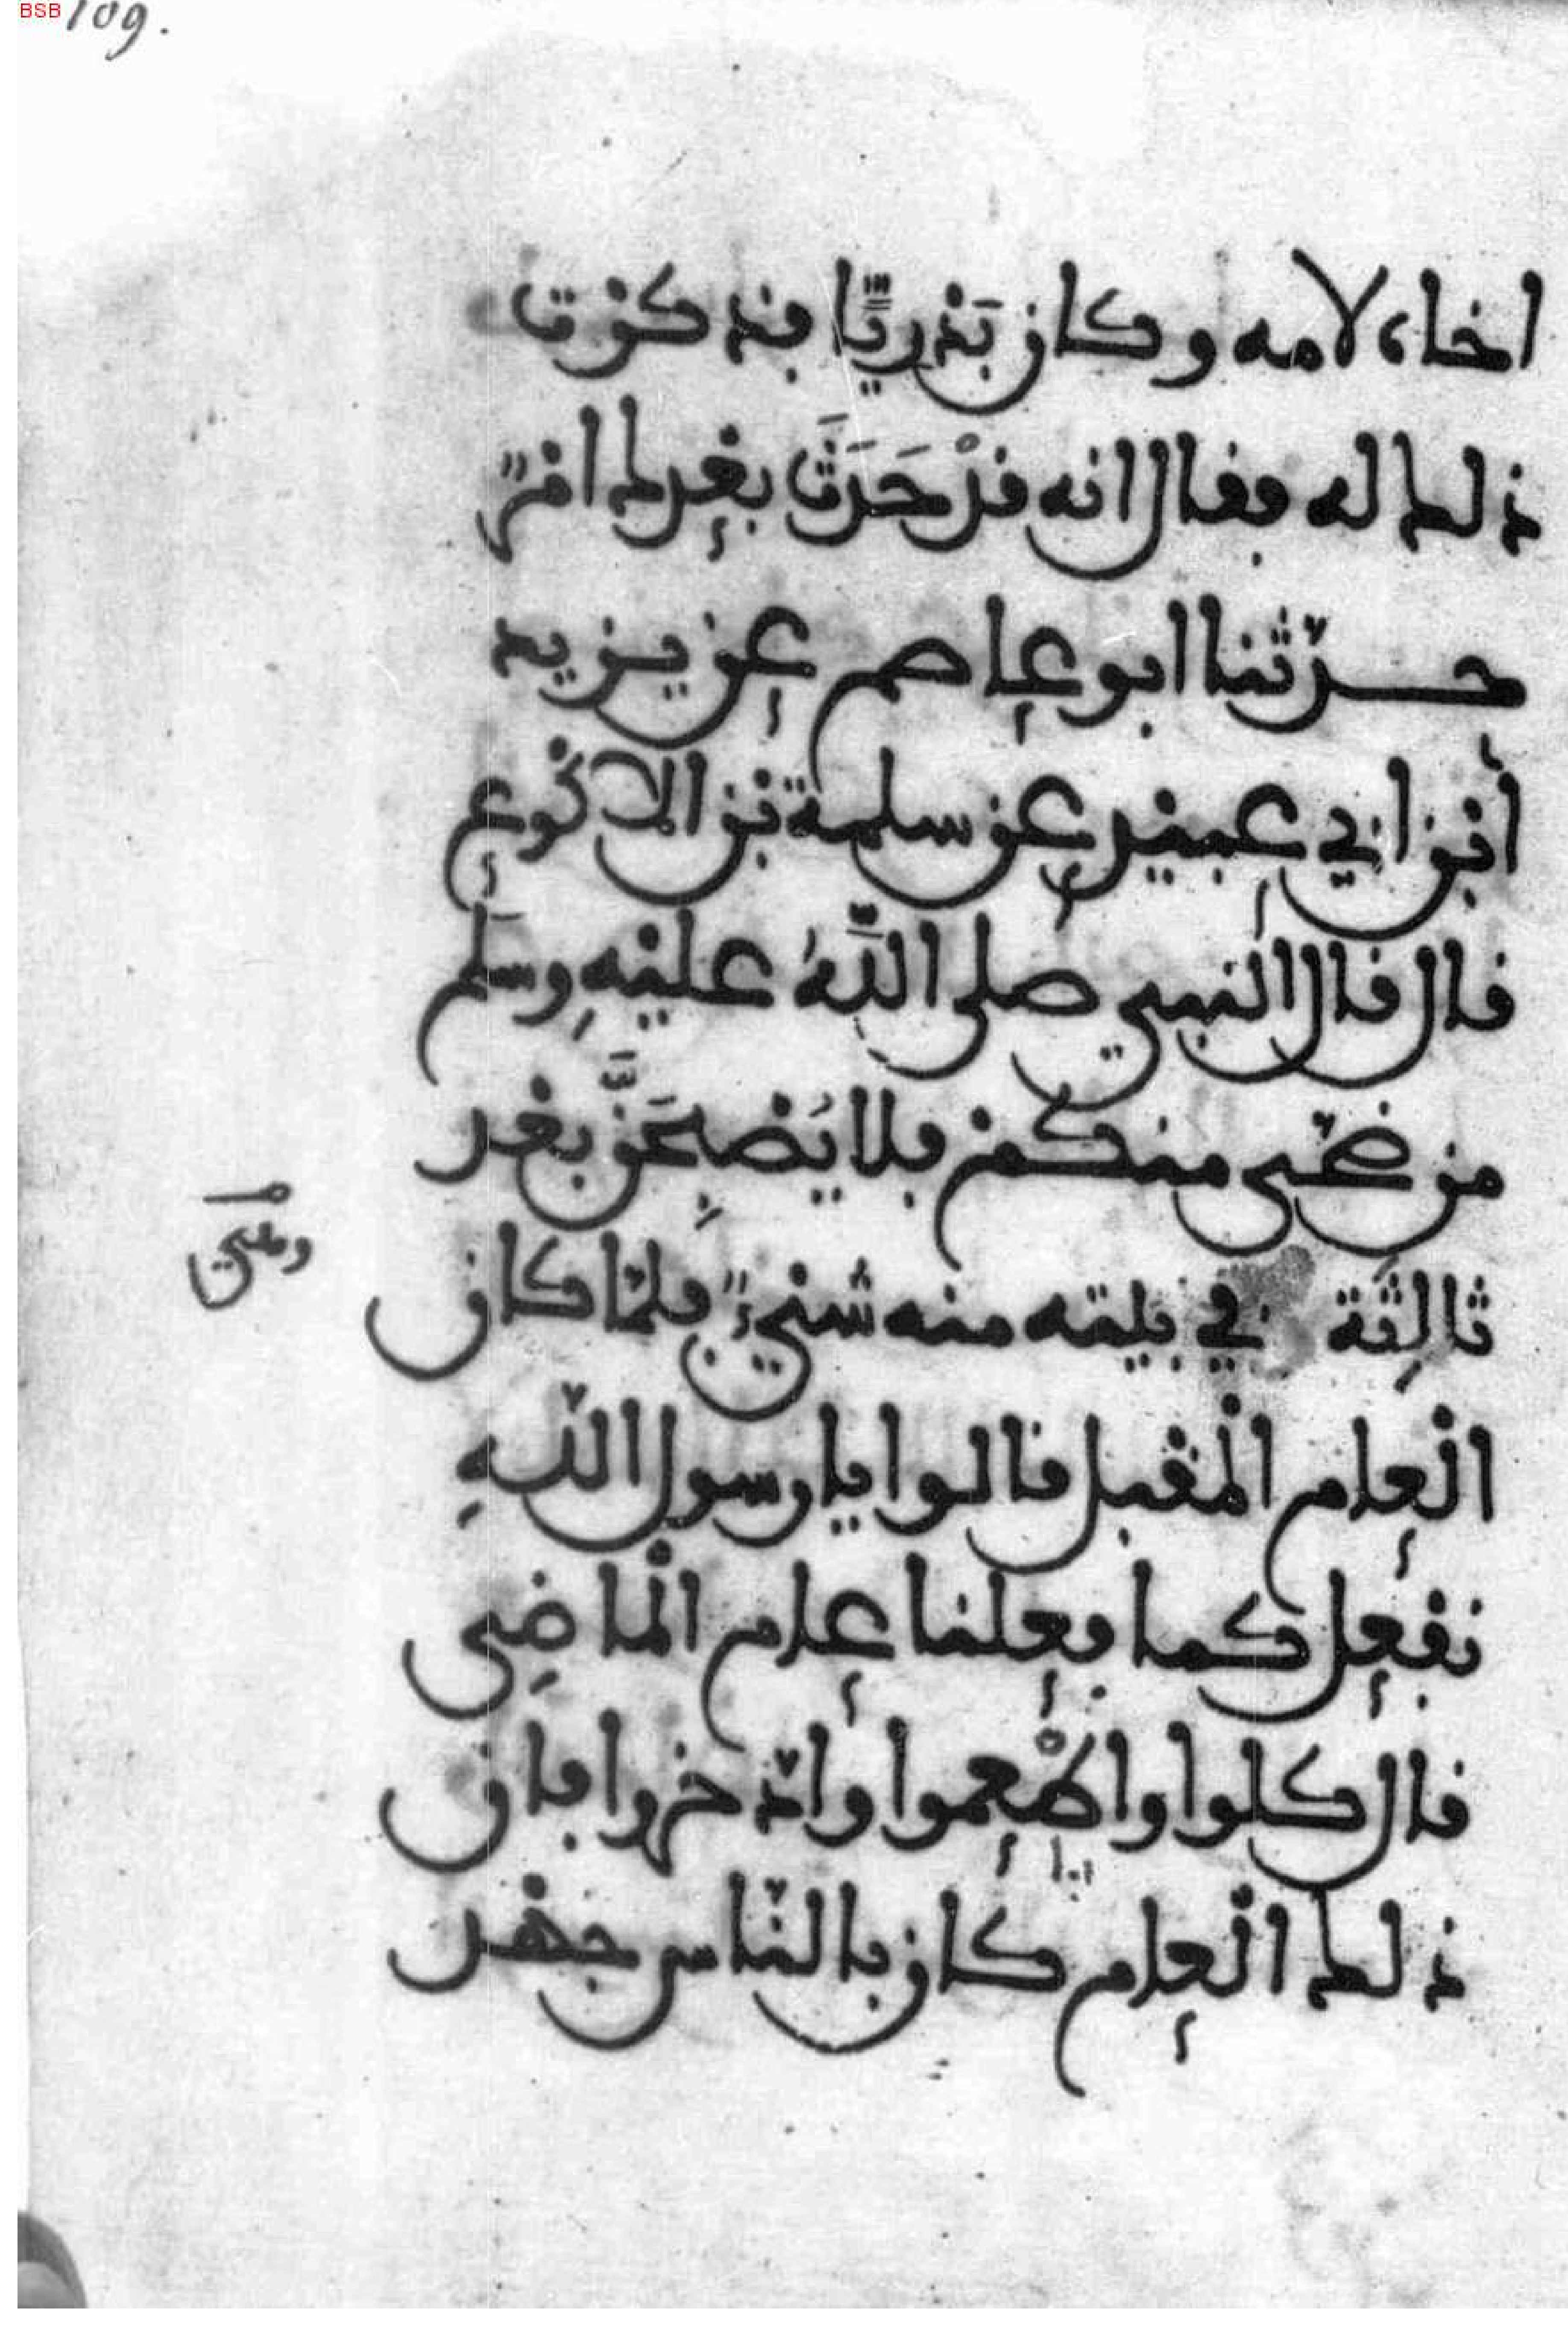 BSB 109.
اخاه لامه وكان بَدْرِيًّا فذكرت
ذلك له فقال انه قدْ حَدَثَ بعْدك امْرٌ
حدّثنا ابو عاصم عن يزيد
أبْن ابي عبيْد عن سلمة بْن الاكْوع
قال قال النبي صلى اللّهُ عليْهِ وسلّم
من ضحّى منكمْ فلا يُصْبِحَنَّ بعْد
ثالِثة في بيته منه شيْءٌ فلمّا كان
الْعام المْقبل قالوا يا رسول اللّهِ
نفْعل كما فعلنا عام الْماضِي
قال كلوا واطْعموا وادّخروا فان
ذلك الْعام كان بالنّاس جهْد
وبقي